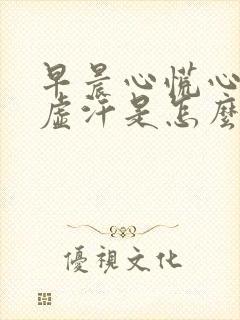 早晨心慌心
虛汗是怎麼
優視文化